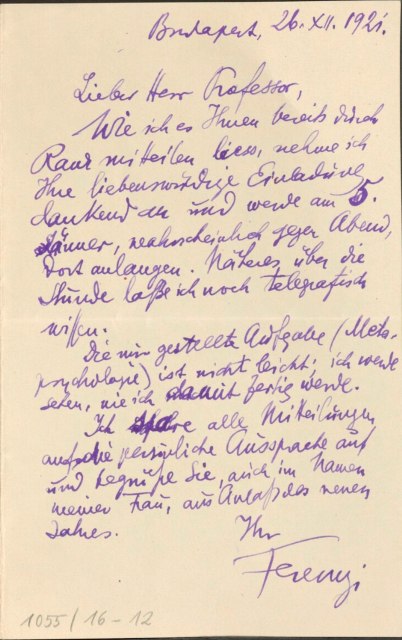 Budapest, 26. XII. 1921.
Lieber Herr Professor,
Wie ich es Ihnen bereits durch
Rank mitteilen liess, nehme ich
Ihre liebenswürdige Einladung
dankend an und werde am 5.
Jänner, wahrscheinlich gegen Abend,
dort anlangen. Näheres über die
Stunde lasse ich noch telegrafisch
wissen.
Die mir gestellte Aufgabe (Meta-
psychologie) ist nicht leicht; ich werde
sehen, wie ich damit fertig werde.
Ich spare alle Mitteilungen
auf die persönliche Aussprache auf
und begrüße Sie, auch im Namen
meiner Frau, aus Anlaß des neuen
Jahres.
Ihr
Ferenczi
1055/16-12